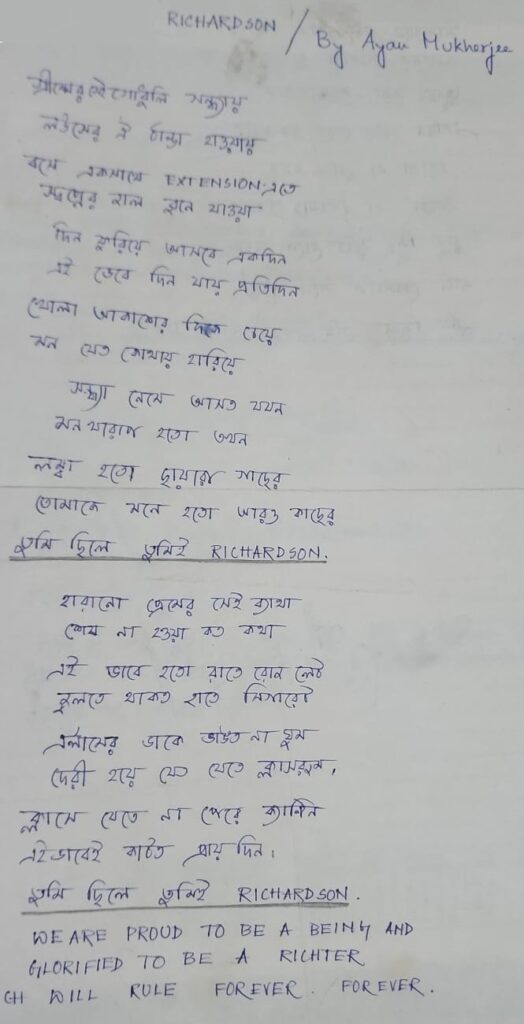 RICHARDSON / By Ayan Mukherjee
গ্রীষ্মের সেই গোধূলি সন্ধ্যায়
লর্ডসের ঐ ঠান্ডা হাওয়ায়
বসে একসাথে EXTENSION-এতে
স্বপ্নের জাল বুনে যাওয়া
দিন ফুরিয়ে আসবে একদিন
এই ভেবে দিন যায় প্রতিদিন
খোলা আকাশের দিকে চেয়ে
মন যেত কোথায় হারিয়ে
সন্ধ্যা নেমে আসত যখন
মন খারাপ হতো তখন
লম্বা হতো ছায়ারা গাছের
তোমাকে মনে হতো আরও কাছের
তুমি ছিলে তুমিই RICHARDSON.
হারানো প্রেমের সেই ব্যাথা
শেষ না হওয়া কত কথা
এই ভাবে হতো রাতে রোজ লেট
ঝুলতে থাকত হাতে সিগারেট
এলার্মের ডাকে ভাঙত না ঘুম
দেরী হয়ে যেত যেতে ক্লাসরুম,
ক্লাসে যেতে না পেরে ক্যান্টিন
এইভাবেই কাটত প্রায় দিন।
তুমি ছিলে তুমিই RICHARDSON.
WE ARE PROUD TO BE A BEING AND
GLORIFIED TO BE A RICHTER
CH WILL RULE FOREVER. FOREVER.